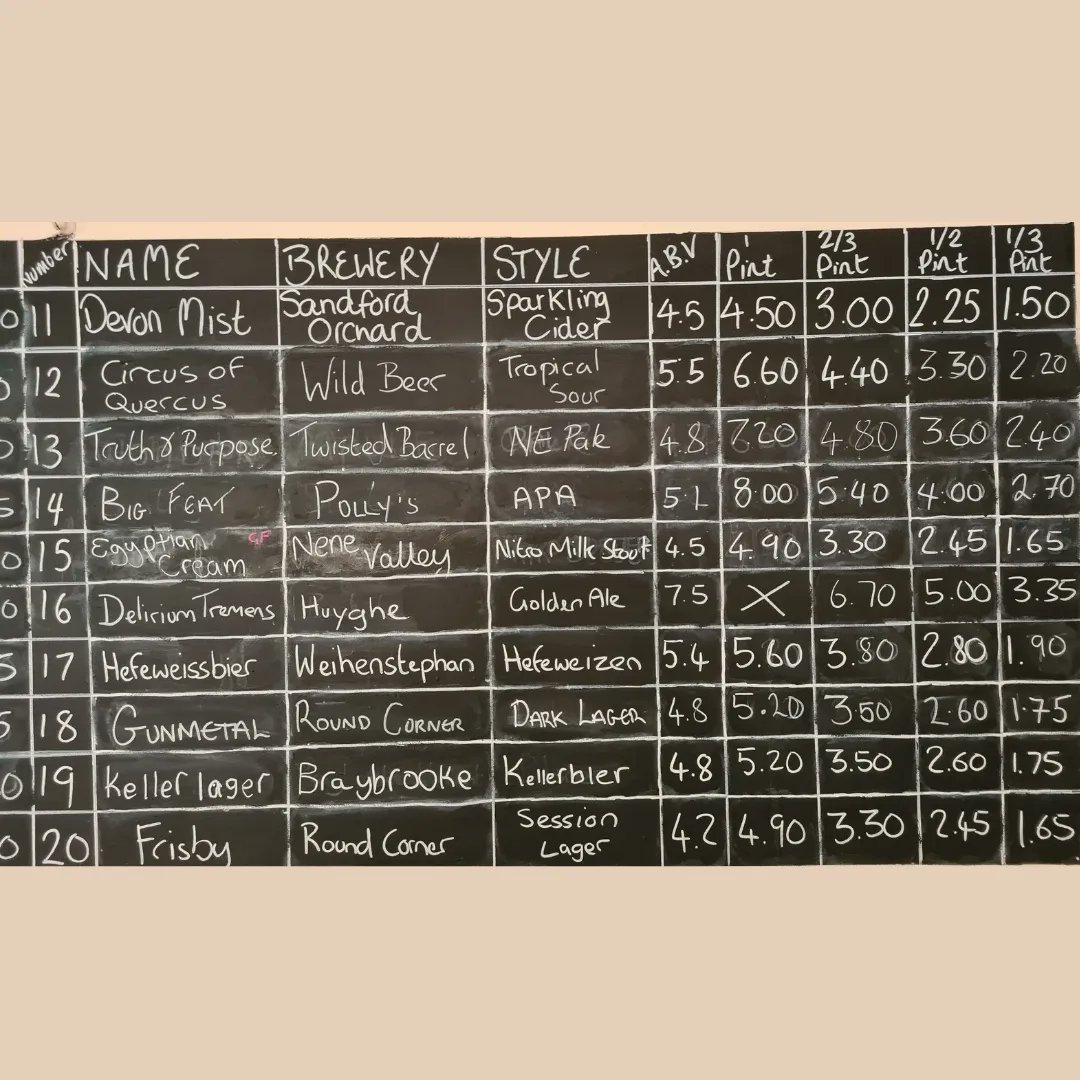 Number NAME BREWERY STYLE A.B.V 1 Pint 2/3 Pint 1/2 Pint 1/3 Pint
0 11 Devon Mist Sandford Orchard Sparkling Cider 4.5 4.50 3.00 2.25 1.50
0 12 Circus of Quercus Wild Beer Tropical Sour 5.5 6.60 4.40 3.30 2.20
0 13 Truth & Purpose Twisted Barrel NE Pale 4.8 7.20 4.80 3.60 2.40
5 14 BIG FEAT POLLY'S APA 5.1 8.00 5.40 4.00 2.70
0 15 Egyptian Cream GF Nene Valley Nitro Milk Stout 4.5 4.90 3.30 2.45 1.65
0 16 Delirium Tremens Huyghe Golden Ale 7.5 X 6.70 5.00 3.35
5 17 Hefeweissbier Weihenstephan Hefeweizen 5.4 5.60 3.80 2.80 1.90
5 18 GUNMETAL ROUND CORNER DARK LAGER 4.8 5.20 3.50 2.60 1.75
0 19 Keller lager Braybrooke Kellerbier 4.8 5.20 3.50 2.60 1.75
0 20 Frisby Round Corner Session Lager 4.2 4.90 3.30 2.45 1.65